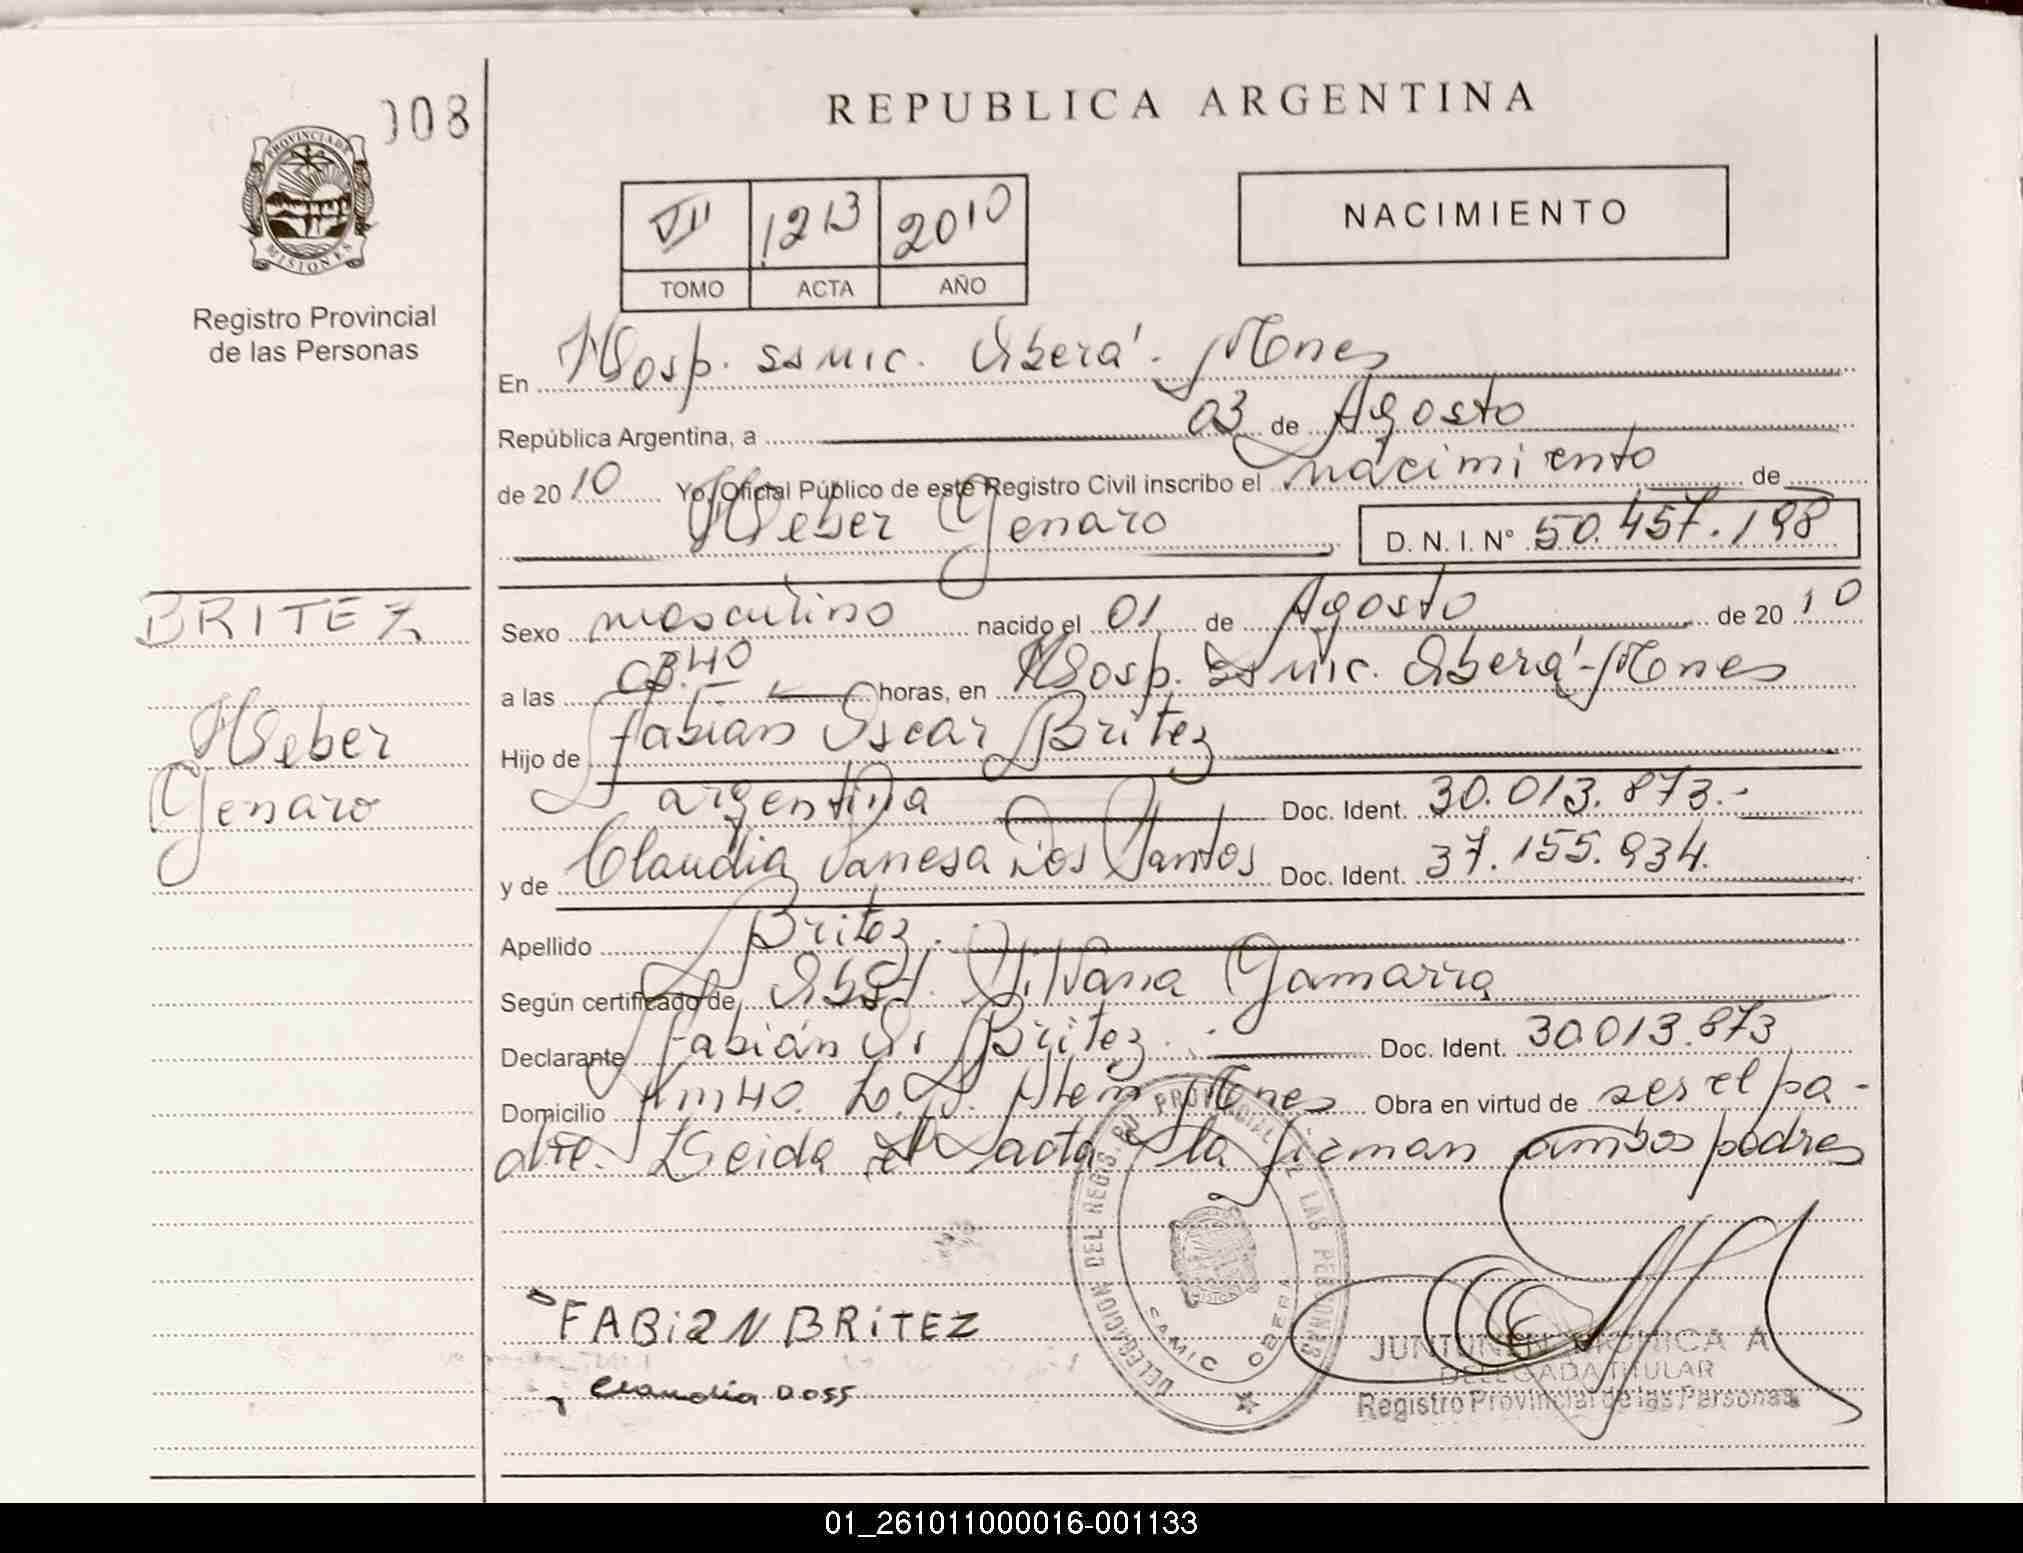 008
PROVINCIA DE
MISIONES
Registro Provincial
de las Personas
REPUBLICA ARGENTINA
VII 1213 2010
TOMO ACTA AÑO
NACIMIENTO
En Hosp. SAMIC. Oberá - Mnes
República Argentina, a 03 de Agosto
de 2010 Yo, Oficial Público de este Registro Civil inscribo el nacimiento de
Heber Genaro D. N. I. N° 50.457.198
BRITEZ
Heber
Genaro
Sexo masculino nacido el 01 de Agosto de 2010
a las 03.40 horas, en Hosp. SAMIC. Oberá - Mnes
Hijo de Fabian Oscar Britez
argentina Doc. Ident. 30.013.873.-
y de Claudia Vanesa Dos Santos Doc. Ident. 37.155.934.
Apellido Britez.
Según certificado de Obst. Silvana Gamarra
Declarante Fabián O. Britez. Doc. Ident. 30.013.873
Domicilio Km 40. L.N. Alem Mnes Obra en virtud de ser el pa-
dre. Leida el acta la firman ambos padres
DELEGACION DEL REGIS. PROVINCIAL DE LAS PERSONAS
SAMIC OBERA
FABiAN BRiTEZ
Claudia Doss
JUNTUNEN MONICA A
DELEGADA TITULAR
Registro Provincial de las Personas
01_261011000016-001133